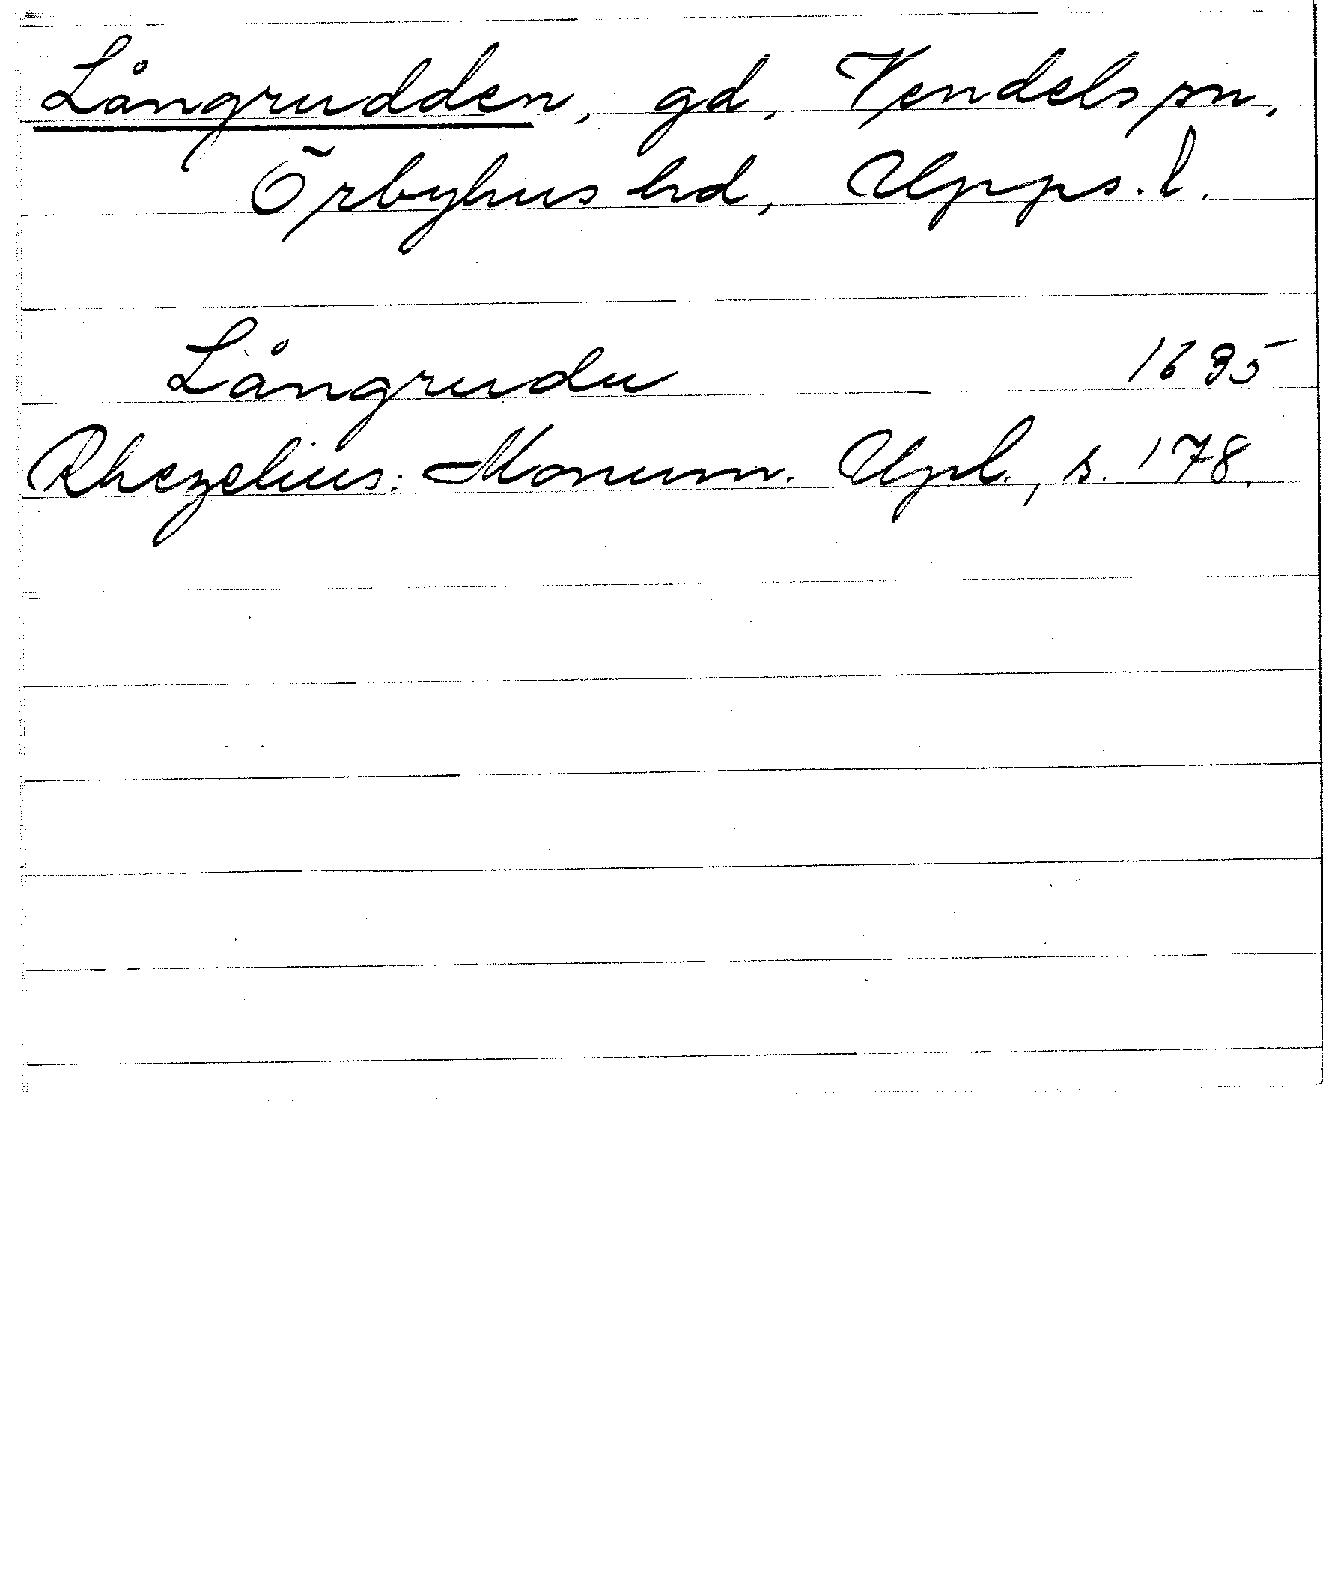 Långrudden, gd, Vendels sn,
Örbyhus hd, Upps. l.
Långrudu 1635
Rhezelius: Monum. Upl., s. 178.